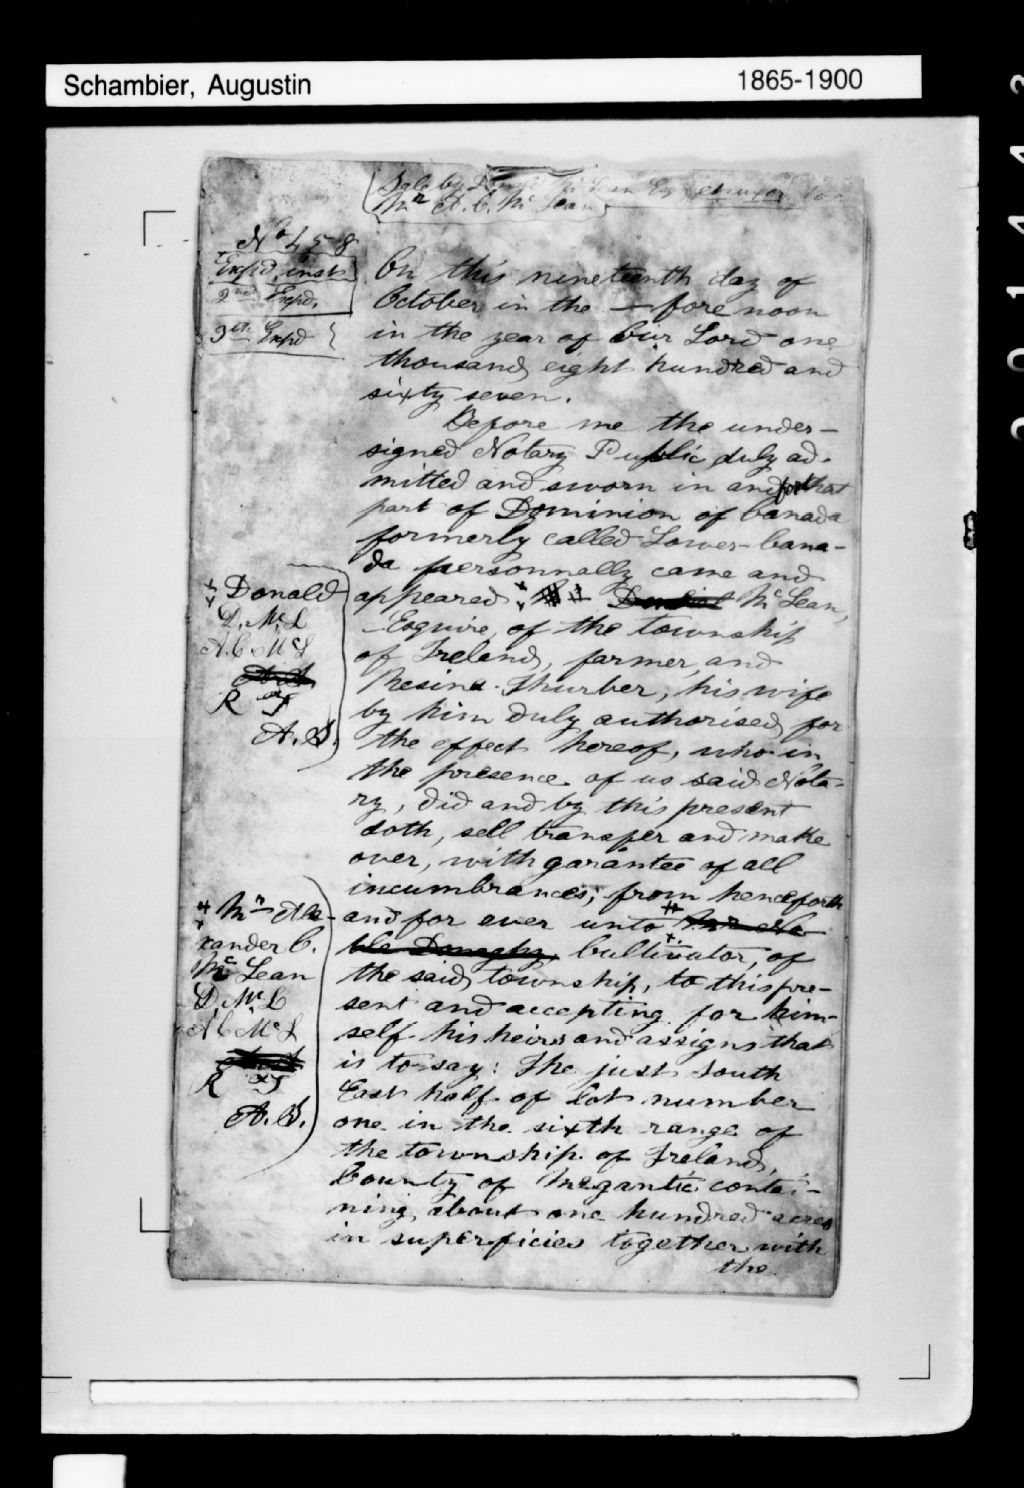 Schambier, Augustin 1865-1900
201443
Sale by Donald McLean Esq. et uxor to
Mr A. C. McLean
No 458
Expd, inst
2nd Expd.
3th Expd
On this nineteenth day of
October, in the — fore noon
in the year of Our Lord one
thousand, eight hundred and
sixty seven.
Before me the under-
signed Notary Public, duly ad-
mitted and sworn in and for that
part of Dominion of Canada
formerly called Lower-Cana-
da personnally came and
appeared McLean,
Esquire, of the township
of Ireland, farmer, and
Resina Thurber, his wife
by him duly authorised, for
the effect hereof, who in
the presence of us said Nota-
ry, did and by this present
doth, sell transfer and make
over, with garantee of all
incumbrances, from henceforth
and for ever unto Mr No
ble Donaghy, Cultivator, of
the said, township, to this pre-
sent and accepting for him-
self his heirs and assigns that
is to say: The just South
East half of lot number
one in the sixth range of
the township of Ireland,
County of Megantic contai-
ning, about one hundred acres
in superficies together with
the
Donald
D. McL
A. C. McL
R T
A. S.
Mr Ale-
xander C.
McLean
D. McL
A C McL
R T
A. S.